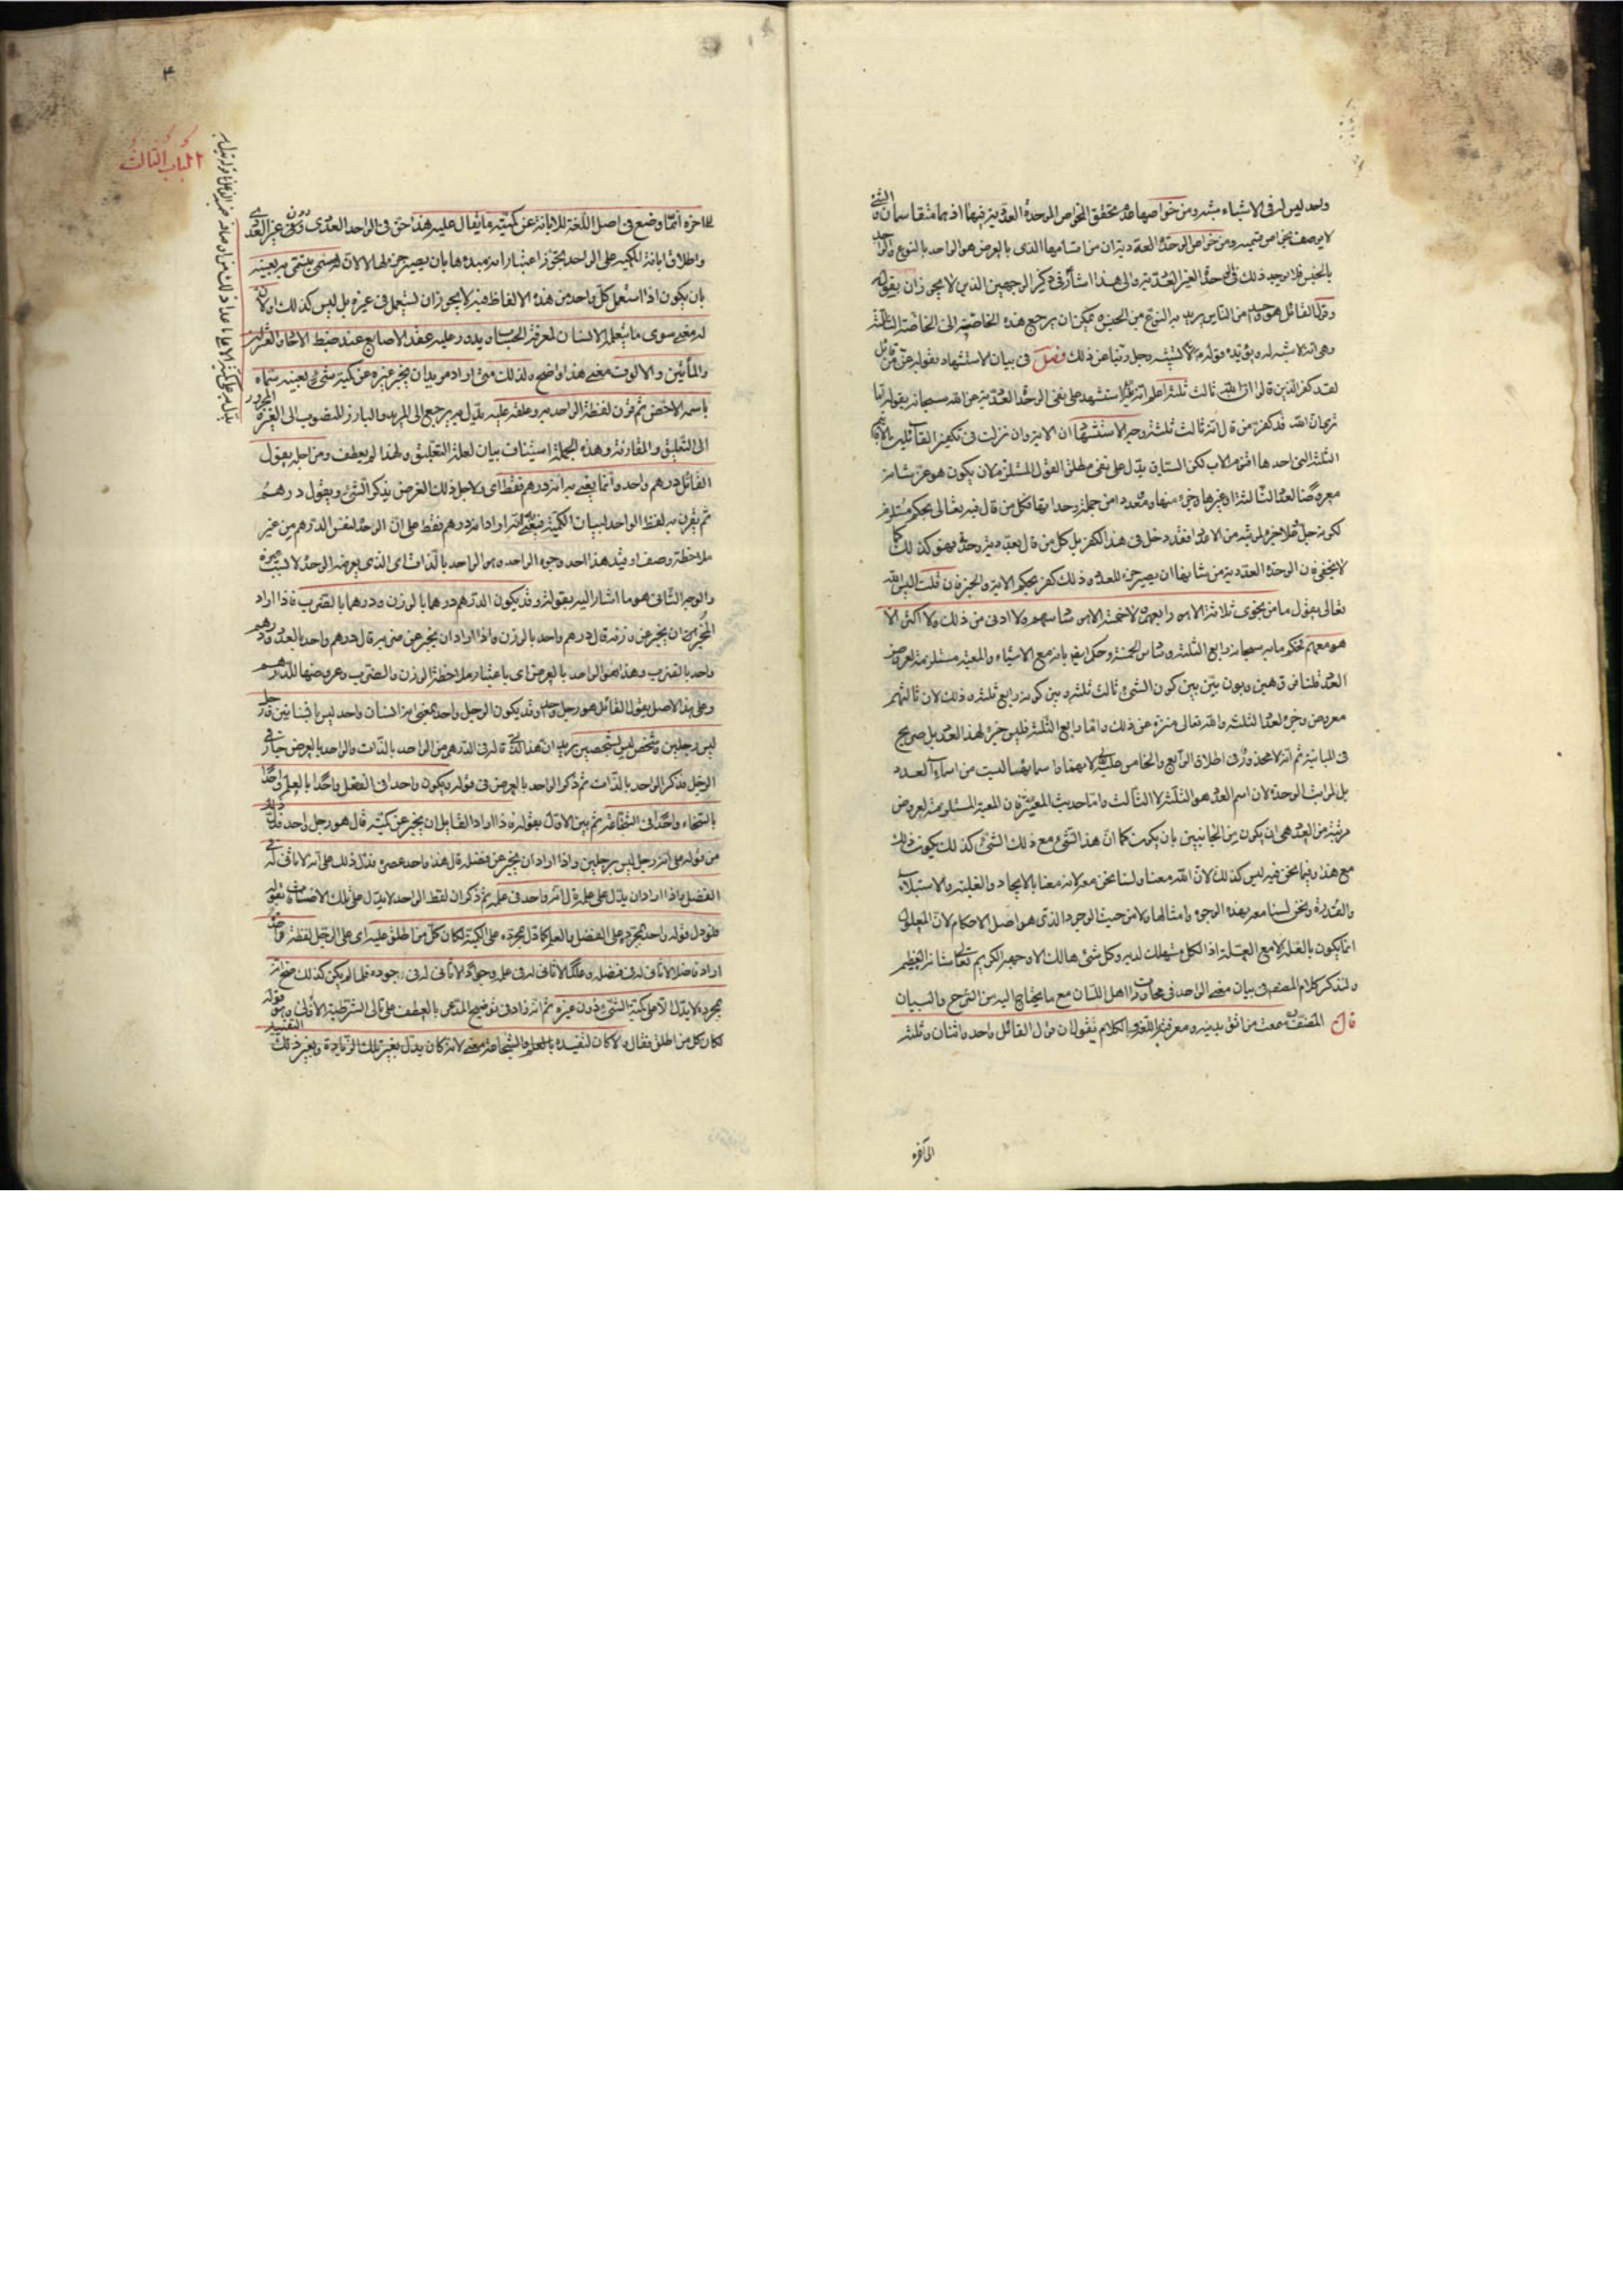 واحد ليس له فى الاشياء شبه ومن خواصها عدم تحقق الخواص الوحدة العددية فيها اذ هما متقاسمان والشئ
لا يوصف بخواص قسيمه ومن خواص الوحدة العددية ان من اقسامها الذى بالعرض هو الواحد بالنوع والواحد
بالجنس فلا يوجد ذلك فى الوحدة الغير العددية والى هذا اشار فى ذكر الوجهين الذين لا يجوزان بقوله
وقول القائل هو واحد من الناس يريد به النوع من الجنس ويمكن ان يرجع هذه الخاصة الى الخاصة الثالثة
وهى انه لا شبه له ويؤيده قوله لانه تشبيه وجل ربنا عن ذلك فصل فى بيان الاستشهاد بقوله عز من قائل
لقد كفر الذين قالوا ان الله ثالث ثلثة اعلم انه استشهد على نفى الوحدة العددية عن الله سبحانه بقوله اما
ترى ان الله قد كفر من قال انه ثالث ثلثة وجه الاستشهاد ان الاية وان نزلت فى تكفير القائلين بالاقانيم
الثلثة التى احدها اقنوم الاب لكن السياق يدل على نفى مطلق القول المستلزم لان يكون هو عز شانه
معروضا لعدد الثالثة او غيرها وجزء منها ومعدودا من جملة وحداتها فكل من قال فيه تعالى بحكم مستلزم
لكونه جل جلاله جزء لمرتبة من الاعداد فقد دخل فى هذا الكفر بل كل من قال بعددية وحدته فهو كذلك كما
لا يخفى فان الوحدة العددية من شانها ان يصير جزء للعدد وذلك كفر بحكم الاية والخبر فان قلت اليس الله
تعالى يقول ما من نجوى ثلاثة الا هو رابعهم ولا خمسة الا هو سادسهم ولا ادنى من ذلك ولا اكثر الا
هو معهم فحكم بانه سبحانه رابع الثلثة وسادس الخمسة وحكم ايضا بانه مع الاشياء والمعية مستلزمة لعروض
العدد قلنا فرق بين وبون بين بين كون الشئ ثالث ثلثة وبين كونه رابع ثلثة وذلك لان ثالثهم
معروض وجزء لعدد الثلثة والله تعالى منزه عن ذلك واما رابع الثلثة فليس جزء لهذا العدد بل صريح
فى المباينة ثم انه لا محذور فى اطلاق الرابع والخامس عليه تعالى لانهما واسامثها ليست من اسماء العدد
بل لمراتب الوحدة لان اسم العدد هو الثلثة لا الثالث واما حديث المعية فان المعية المستلزمة لعروض
مرتبة من العدد هى ان يكون من الجانبين بان يكون كما ان هذا الشئ مع ذلك الشئ كذلك يكون ذلك
مع هذا وفيما نحن فيه ليس كذلك لان الله معنا ولسنا نحن معه لانه معنا بالايجاد والغلبة والاستيلاء
والقدرة ونحن لسنا معه بهذه الوجوه وامثالها ولا من حيث الوجود الذى هو اصل الاحكام لان المعلول
انما يكون بالعلة لا مع العلة اذ الكل مستهلك لديه وكل شئ هالك الا وجهه الكريم تعالى شانه العظيم
ولنذكر كلام المصنف فى بيان معنى الواحد فى محاورات اهل اللسان مع ما يحتاج اليه من الشرح والبيان
قال المصنف سمعت من اثق بدينه ومعرفته باللغة والكلام يقول ان قول القائل واحد واثنان وثلثة
الى آخره
٣
الباب الثالث
الى اخره انما وضع فى اصل اللغة للابانة عن كمية ما يقال عليه هذا حق فى الواحد العددى دون غير العددى
واطلاق ابانة الكمية على الواحد بتجوز اعتبار انه مبدءها بان يصير جزء لها لا لان له مسمى يتسمى به بعينه
بان يكون اذا استعمل كل واحد من هذه الالفاظ فيه لا يجوز ان يستعمل فى غيره بل ليس كذلك او لان
له معنى سوى ما يتعلمه الانسان لمعرفة الحساب ويدور عليه عقد الاصابع عند ضبط الاحاد والعشرات
والمأئين والالوف معنى هذا واضح ولذلك متى اراد مريد ان يخبر غيره عن كمية شئ بعينه سماه
باسمه الاخص ثم قرن لفظة الواحد به وعلقه عليه يدل به يرجع الى المريد والبارز المنصوب الى الغير والمجرور
الى التعليق والمقارنة وهذه الجملة استيناف بيان لعلة التعليق ولهذا لم يعطف ومن اجله يقول
القائل درهم واحد وانما يعنى به انه درهم فقط اى ولاجل ذلك الغرض يذكر الشئ ويقول درهم
ثم يقرن به لفظ الواحد لبيان الكمية فيفهم انه اراد انه درهم فقط على ان الوحدة لنفس الدرهم من غير
ملاحظة وصف او قيد هذا احد وجوه الواحد وهو الواحد بالذات اى الذى يعرضه الوحدة لا بسبب غيره
والوجه الثانى هو ما اشار اليه بقوله وقد يكون الدرهم درهما بالوزن ودرهما بالضرب فاذا اراد
المخبر ان يخبر عن وزنه قال درهم واحد بالوزن واذا اراد ان يخبر عن ضربه قال درهم واحد بالعدد ودرهم
واحد بالضرب وهذا هو الواحد بالعرض اى باعتبار ملاحظة الوزن والضرب وعروضها للدرهم
وعلى هذا الاصل يقول القائل هو رجل واحد وقد يكون الرجل واحدا بمعنى انه انسان واحد ليس بانسانين ورجل
ليس رجلين وشخص ليس شخصين يريد ان هذا الذى قاله فى الدرهم من الواحد بالذات والواحد بالعرض جار فى
الرجل فذكر الواحد بالذات ثم ذكر الواحد بالعرض فى قوله ويكون واحدا فى الفضل واحدا بالعلم واحدا
بالسخاء واحدا فى الشجاعة ثم بين الاول بقوله فاذا اراد القايل ان يخبر عن كميته قال هو رجل واحد فدل ذلك
من قوله على انه رجل ليس برجلين واذا اراد ان يخبر عن فضله قال هذا واحد عصره فدل ذلك على انه لا ثانى له فى
الفضل واذا اراد ان يدل على علمه قال انه واحد فى علمه ثم ذكر ان لفظ الواحد لا يدل على تلك الاضافات بقوله
فلو دل قوله واحد بمجرده على الفضل والعلم كما دل بمجرده على الكمية لكان كل من اطلق عليه اى على الرجل لفظة واحد
اراد فاضلا لا ثانى له فى فضله وعالما لا ثانى له فى علمه وجوادا لا ثانى له فى جوده فلما لم يكن كذلك صح انه
بمجرده لا يدل الا على كمية الشئ دون غيره ثم انه زاد فى توضيح المدعى بالعطف على تالى الشرطية الاولى بقوله
لكان كل من اطلق فقال ولا كان لتقييده بالعلم والشجاعة معنى لانه كان يدل بغير تلك الزيادة وبغير ذلك التقييد